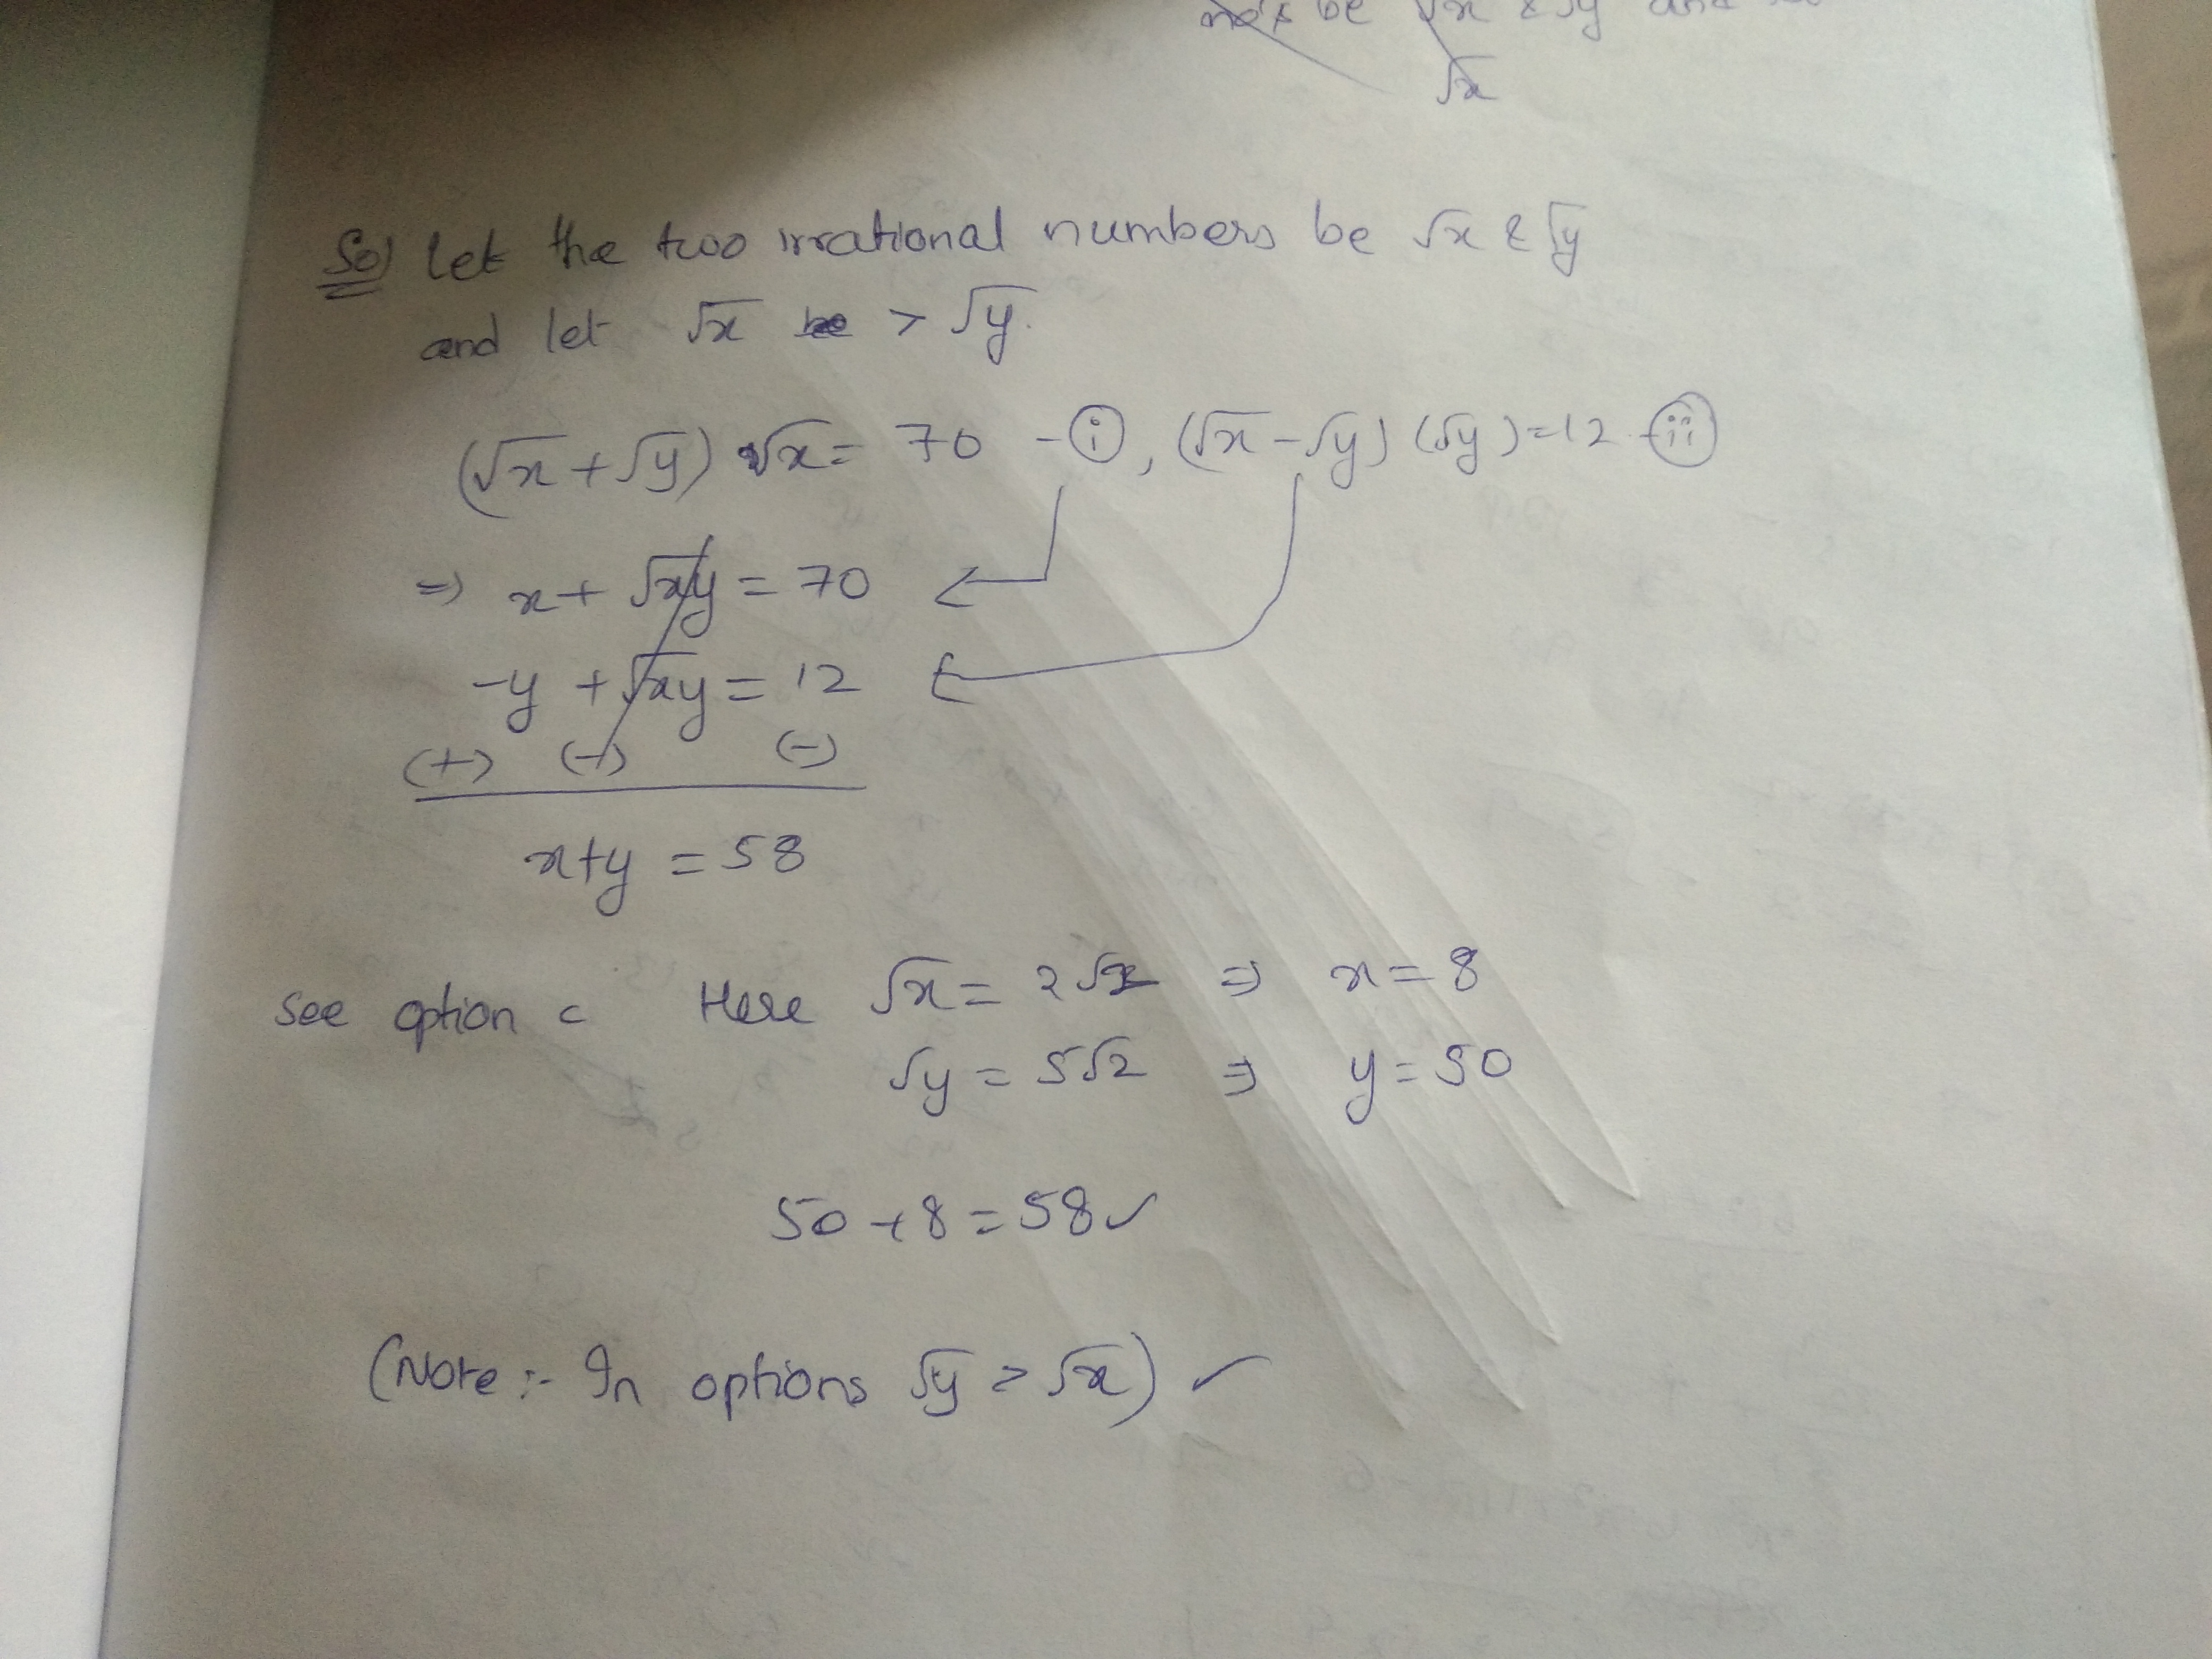 be √x & √y and
√x
Sol Let the two irrational numbers be √x & √y
and let √x > √y.
(√x + √y) √x = 70 - (i), (√x - √y) (√y) = 12 - (ii)
⇒ x + √xy = 70
-y + √xy = 12
(+) (-) (-)
x+y = 58
see option c Here √x = 2√2 ⇒ x = 8
√y = 5√2 ⇒ y = 50
50 + 8 = 58 ✓
(Note :- In options √y > √x) ✓